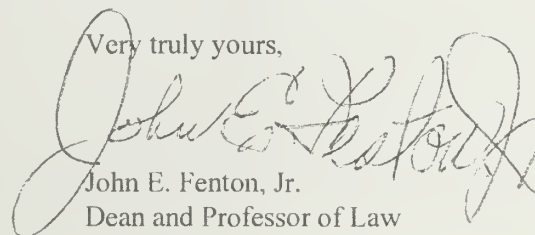 Very truly yours,
John E. Fenton, Jr.
John E. Fenton, Jr.
Dean and Professor of Law